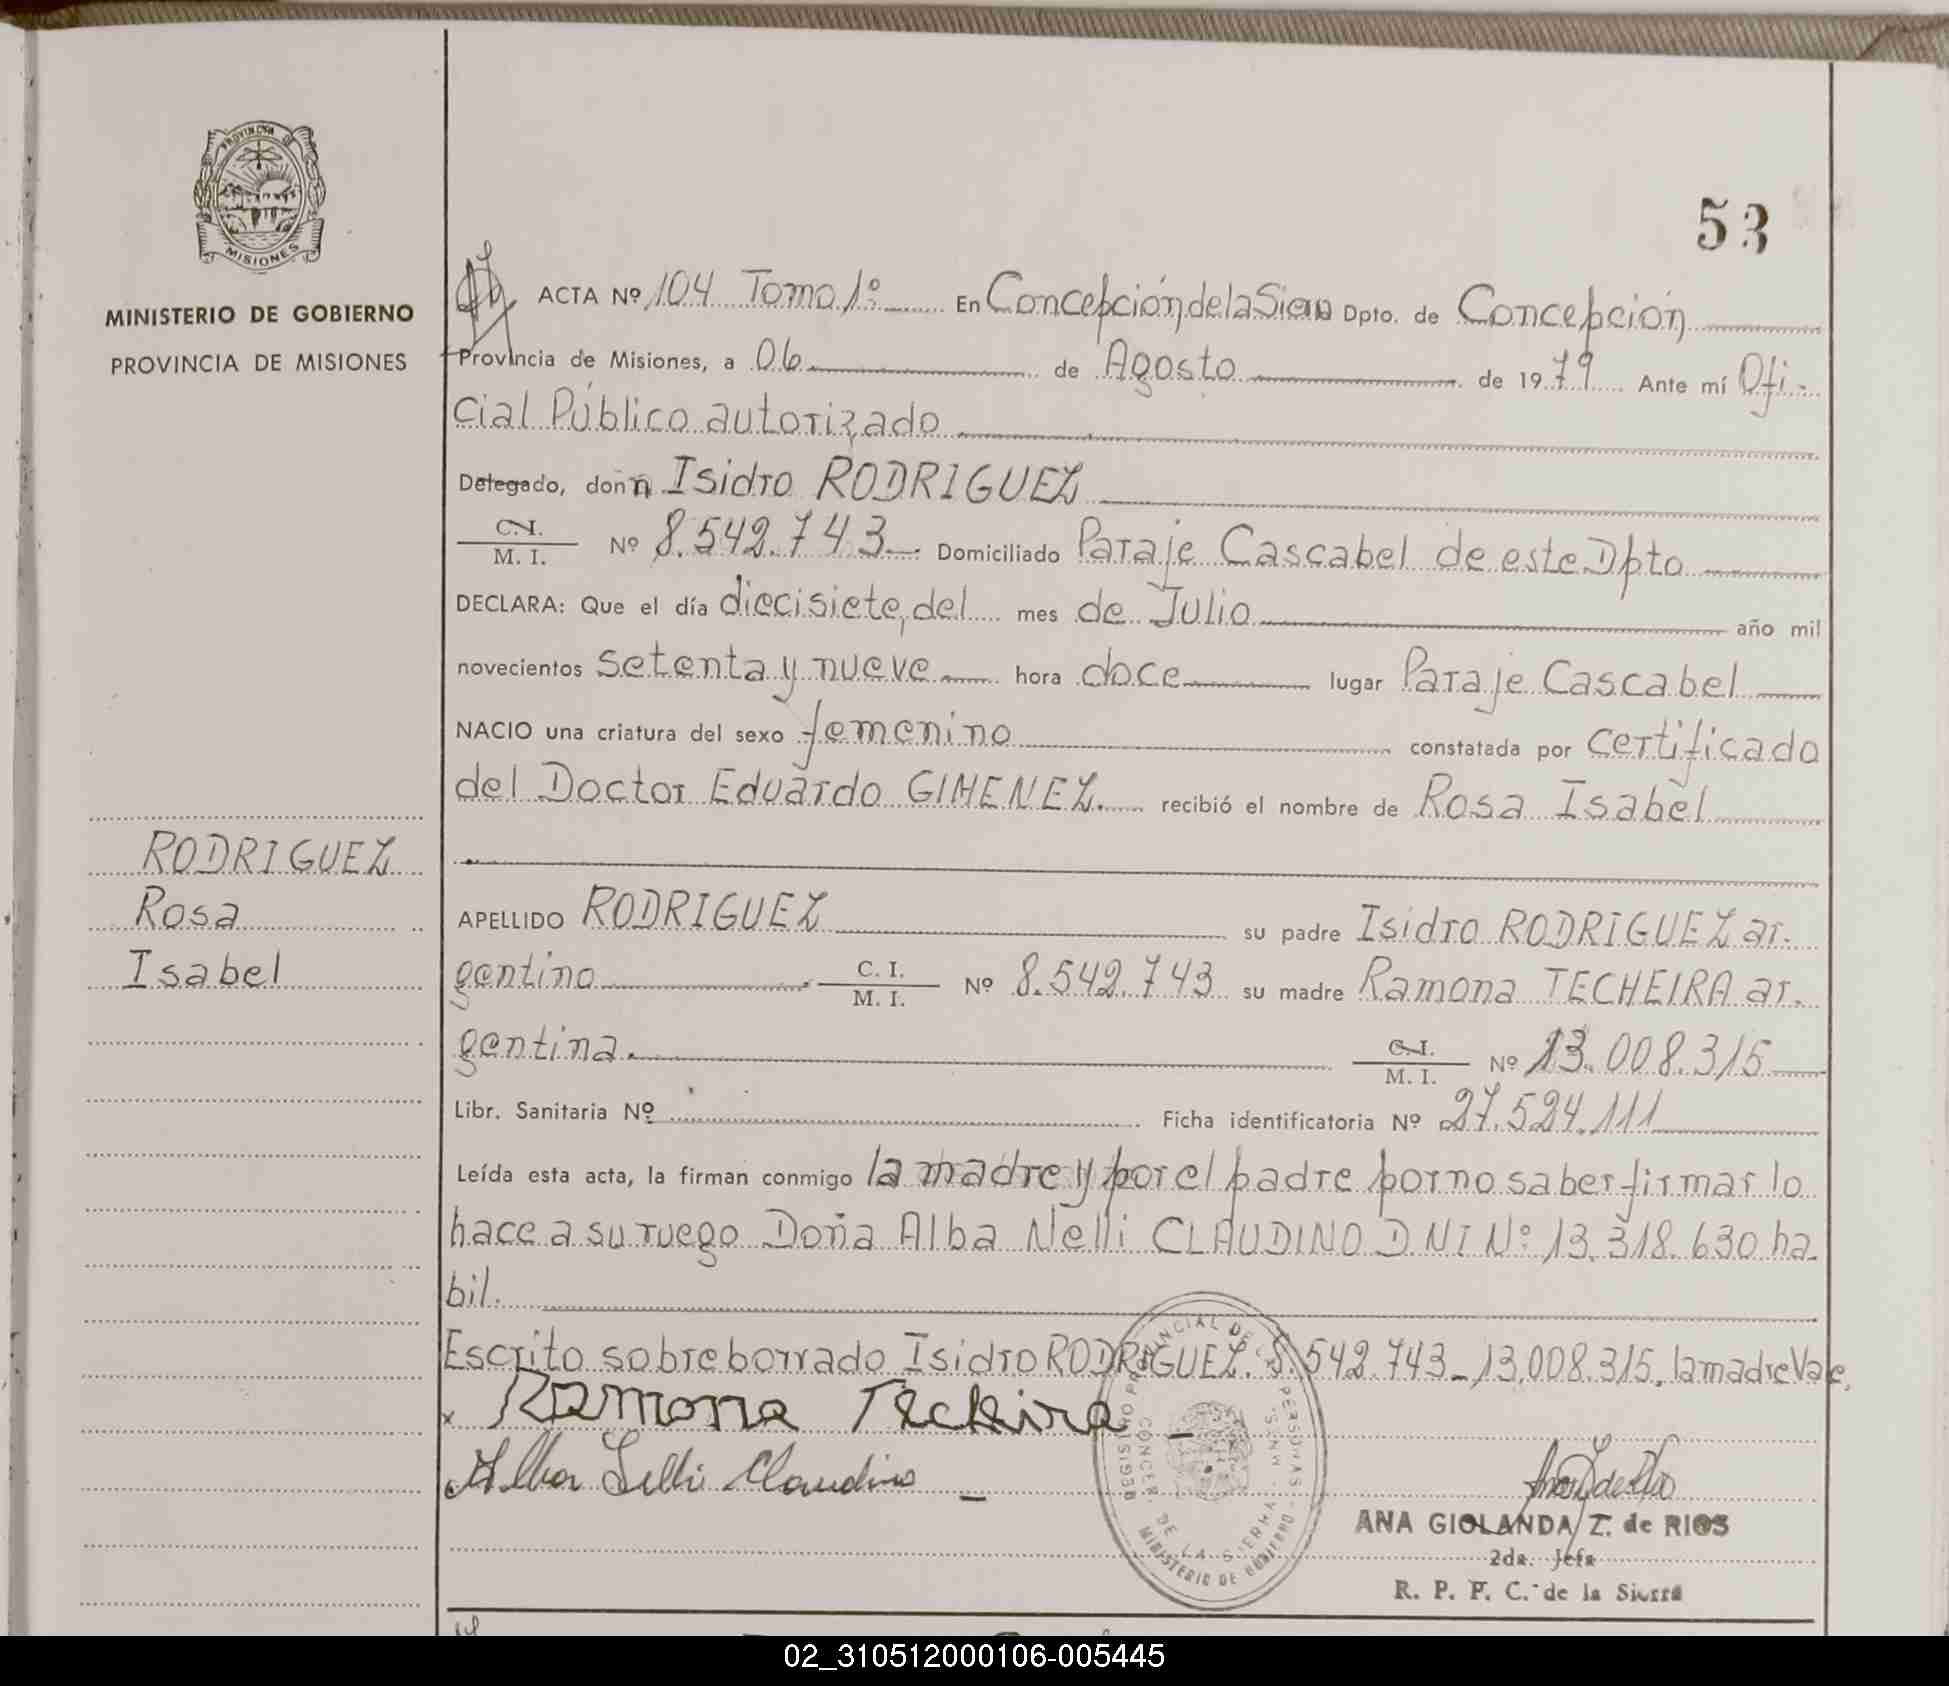 PROVINCIA DE
MISIONES
MINISTERIO DE GOBIERNO
PROVINCIA DE MISIONES
RODRIGUEZ
Rosa
Isabel
53
ACTA Nº 104 Tomo 1º En Concepción de la Sierra Dpto. de Concepción
Provincia de Misiones, a 06 de Agosto de 1979 Ante mí Ofi-
cial Público autorizado
Delegado, don Isidro RODRIGUEZ
C. I. / M. I. Nº 8.542.743 Domiciliado Paraje Cascabel de este Dpto
DECLARA: Que el día diecisiete, del mes de Julio año mil
novecientos setenta y nueve hora doce lugar Paraje Cascabel
NACIO una criatura del sexo femenino constatada por certificado
del Doctor Eduardo GIMENEZ. recibió el nombre de Rosa Isabel
APELLIDO RODRIGUEZ su padre Isidro RODRIGUEZ ar-
gentino C. I. / M. I. Nº 8.542.743 su madre Ramona TECHEIRA ar-
gentina. C. I. / M. I. Nº 13.008.315
Libr. Sanitaria Nº Ficha identificatoria Nº 27.524.111
Leída esta acta, la firman conmigo la madre y por el padre por no saber firmar lo
hace a su ruego Doña Alba Nelli CLAUDINO D NI Nº 13.318.630 ha-
bil.
Escrito sobre borrado Isidro RODRIGUEZ. 8.542.743-13.008.315. la madre Vale.
x Ramona Techira
Alba Nelli Claudino
REGISTRO PROVINCIAL DE LAS PERSONAS
CONCEP. DE LA SIERRA - MNES.
MINISTERIO DE GOBIERNO
ANA GIOLANDA Z. de RIOS
2da. Jefa
R. P. P. C. de la Sierra
02_310512000106-005445